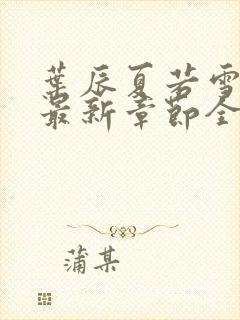 葉辰夏若雪
最新章節全
蒲某